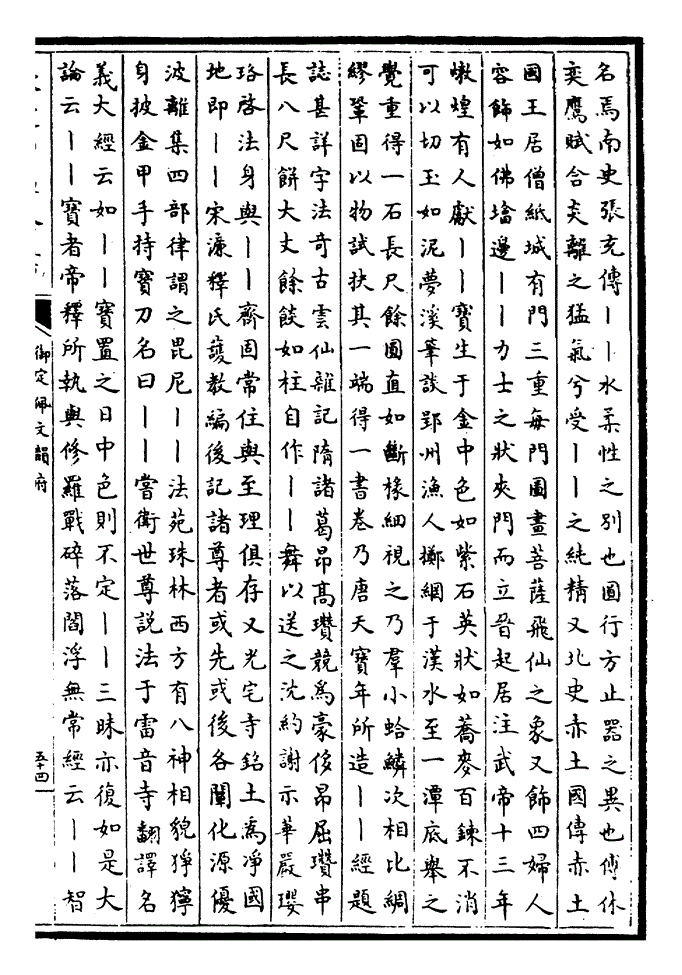 名焉南史張充傳丨丨水柔性之別也圓行方止器之異也傅休
奕鷹賦含炎離之猛氣兮受丨丨之純精又北史赤土國傳赤土
國王居僧紙城有門三重每門圖畫菩薩飛仙之象又飾四婦人
容飾如佛塔邊丨丨力士之狀夾門而立晉起居注武帝十三年
燉煌有人獻丨丨寶生于金中色如紫石英狀如蕎麥百鍊不消
可以切玉如泥夢溪筆談郢州漁人擲網于漢水至一潭底舉之
覺重得一石長尺餘圓直如斷椽細視之乃羣小蛤鱗次相比綢
繆鞏固以物試抉其一端得一書卷乃唐天寶年所造丨丨經題
誌甚詳字法奇古雲仙雜記隋諸葛昂高瓚競為豪侈昂屈瓚串
長八尺餅大丈餘餤如柱自作丨丨舞以送之沈約謝示華嚴瓔
珞啓法身與丨丨齊固常住與至理俱存又光宅寺銘土為凈國
地即丨丨宋濂釋氏護教編後記諸尊者或先或後各闡化源優
波離集四部律謂之毘尼丨丨法苑珠林西方有八神相貌猙獰
身披金甲手持寶刀名曰丨丨嘗衛世尊説法于雷音寺翻譯名
義大經云如丨丨寶置之日中色則不定丨丨三昧亦復如是大
論云丨丨寶者帝釋所執與修羅戰碎落閻浮無常經云丨丨智
御定佩文韻府
五十四